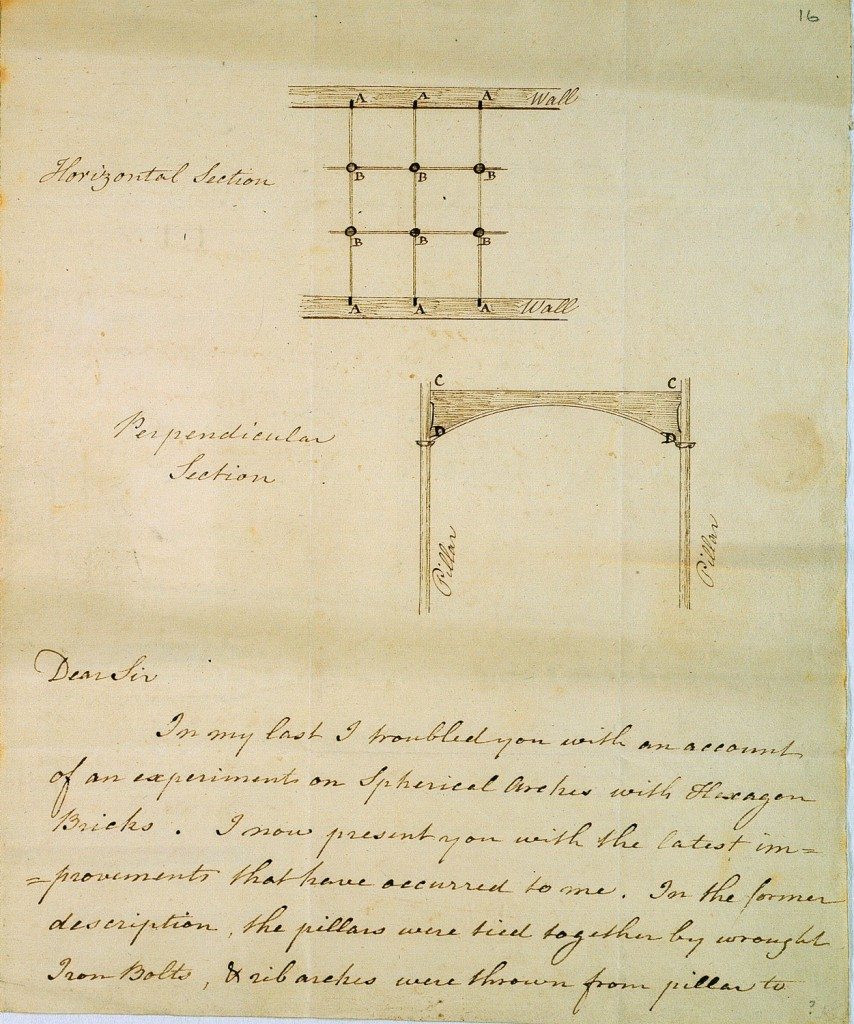 16
A A A Wall
Horizontal Section
B B B
B B B
A A A Wall
C C
Perpendicular
Section
D D
Pillar Pillar
Dear Sir
In my last I troubled you with an account
of an experiment on Spherical Arches with Hexagon
Bricks. I now present you with the latest im=
=provements that have occurred to me. In the former
description, the pillars were tied together by wrought
Iron Bolts, & rib arches were thrown from pillar to
?